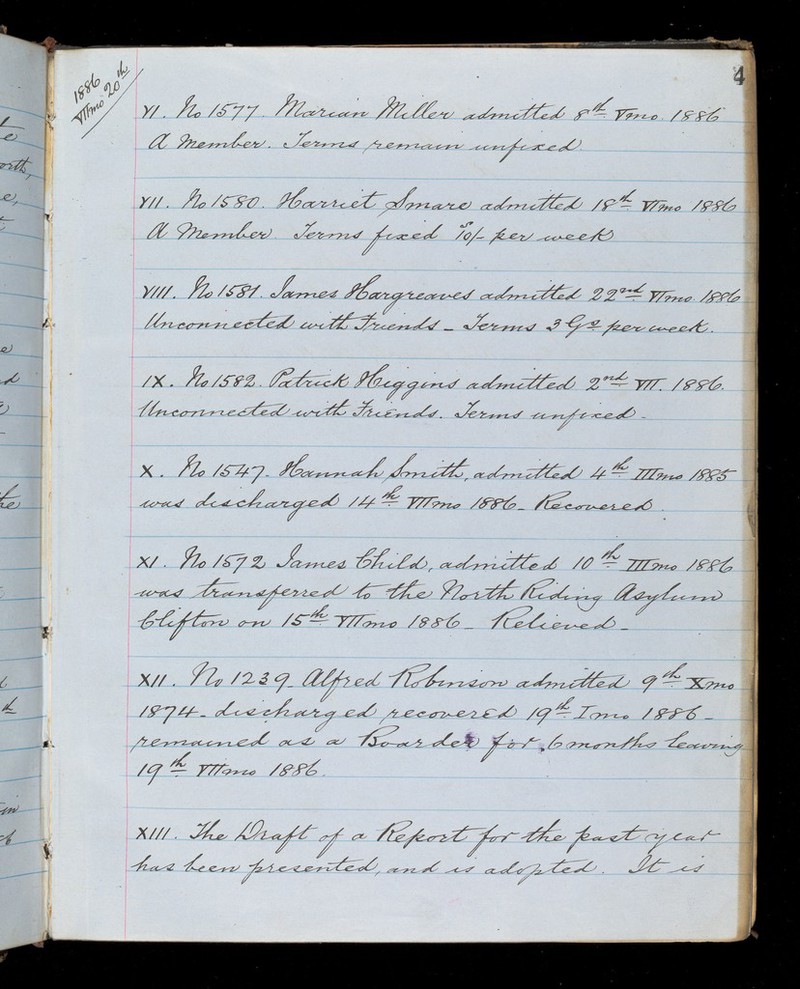 4
1886
VIImo 20th
VI. No 1577. Marian Miller admitted 8th Vmo. 1886
A Member. Terms remain unfixed.
VII. No 1580. Harriet Smare admitted 18th VImo 1886
A Member Terms fixed 10/- per week
VIII. No 1581. James Hargreaves admitted 22nd VImo. 1886
Unconnected with Friends - Terms 3 Gs per week.
IX. No 1582. Patrick Higgins admitted 2nd VII. 1886.
Unconnected with Friends. Terms unfixed -
X. No 1547. Hannah Smith, admitted 4th IIImo 1885
was discharged 14th VIImo 1886 - Recovered.
XI. No 1572 James Child, admitted 10th IIImo 1886
was transferred to the North Riding Asylum
Clifton on 15th VIImo 1886 - Relieved -
XII. No 1239 - Alfred Robinson admitted 9th Xmo
1874 - discharged recovered 19th Imo 1886 -
remained as a Boarder for 6 months leaving
19th VIImo 1886.
XIII. The Draft of a Report for the past year
has been presented, and is adopted. It is